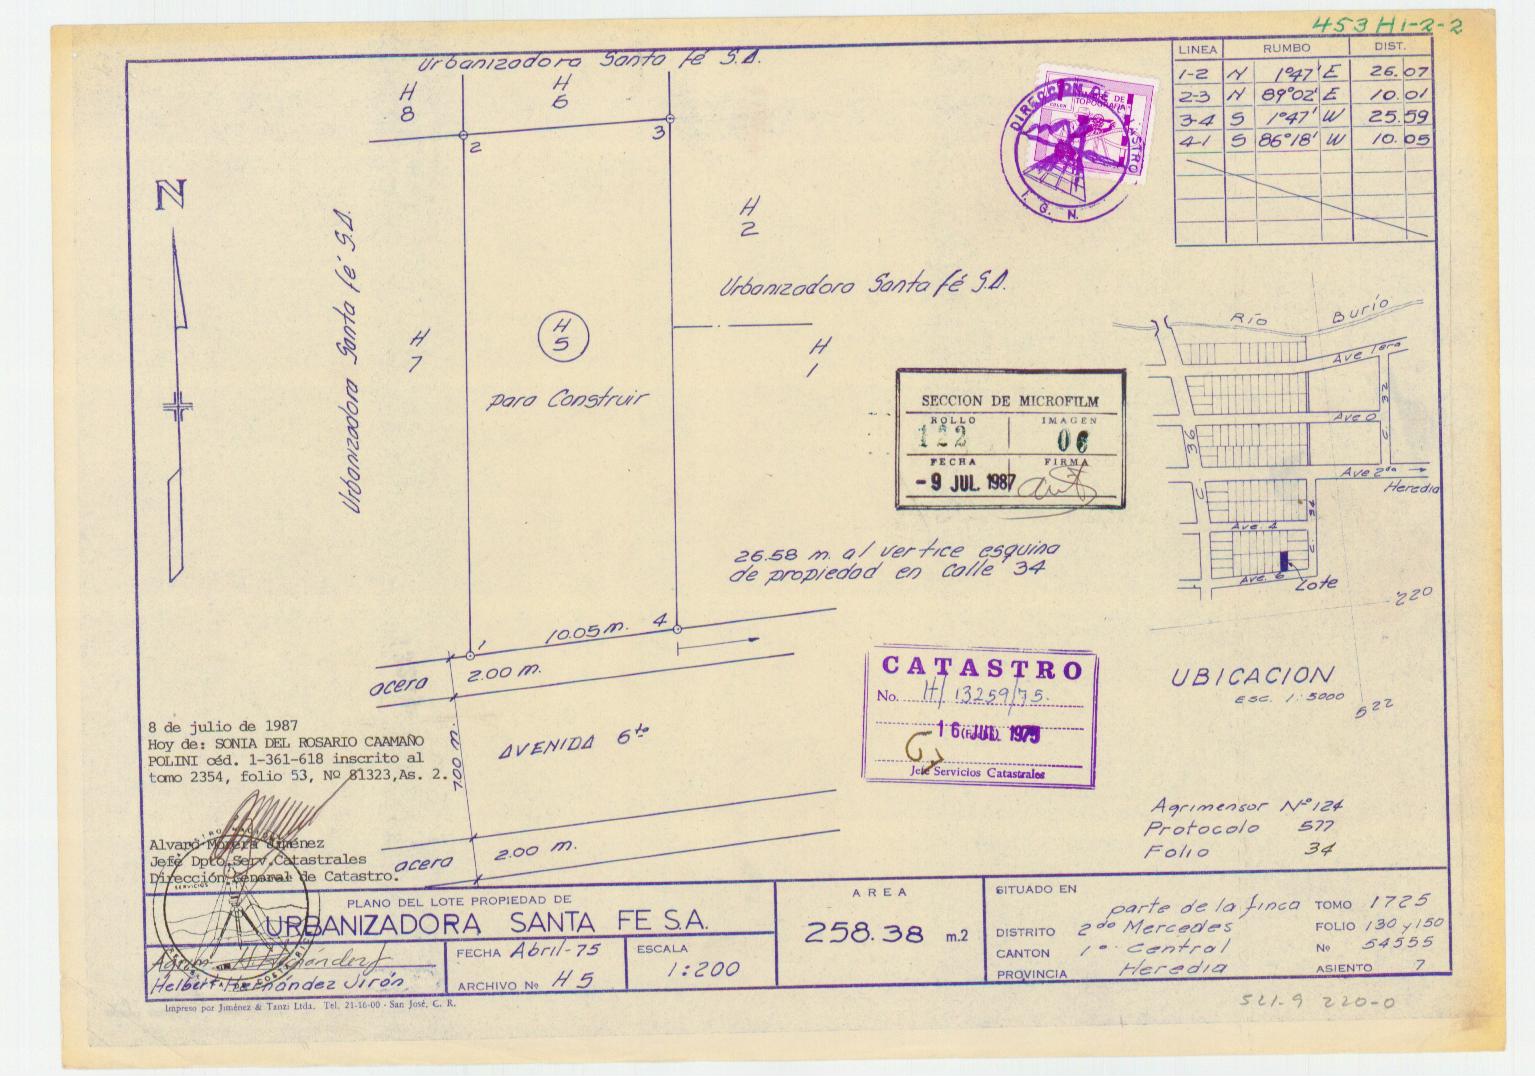 453 H1-2-2
LINEA RUMBO DIST.
1-2 N 1°47' E 26.07
2-3 N 89°02' E 10.01
3-4 S 1°47' W 25.59
4-1 S 86°18' W 10.05
Urbanizadora Santa Fé S.A.
H
8
H
6
2
3
N
H
2
Urbanizadora Santa Fé S.A.
Urbanizadora Santa Fé S.A.
H
7
H
5
H
1
para Construir
DIRECCION DE CATASTRO
I. G. N.
DE
TOPOGRAFIA
SECCION DE MICROFILM
ROLLO IMAGEN
122 06
FECHA FIRMA
-9 JUL. 1987
26.58 m. al vertice esquina
de propiedad en calle 34
Río Burío
Ave 1era
C. 32
Ave 0
C. 36
Ave 2da
Heredia
Ave. 4
C. 34
Ave. 6
Lote
220
UBICACION
ESC. 1:5000
522
10.05 m.
1
4
acera 2.00 m.
7.00 m.
AVENIDA 6ta
acera 2.00 m.
CATASTRO
No. H/ 13259/75.
16 JUL. 1975
Jefe Servicios Catastrales
8 de julio de 1987
Hoy de: SONIA DEL ROSARIO CAAMAÑO
POLINI céd. 1-361-618 inscrito al
tomo 2354, folio 53, Nº 81323,As. 2.
Alvaro Morera Jiménez
Jefe Dpto.Serv.Catastrales
Dirección General de Catastro.
Agrimensor Nº 124
Protocolo 577
Folio 34
PLANO DEL LOTE PROPIEDAD DE
URBANIZADORA SANTA FE S.A.
Agrim. H Hernández
Helbert Hernández Jirón
FECHA Abril-75
ARCHIVO Nº H 5
ESCALA
1:200
AREA
258.38 m.2
SITUADO EN
parte de la finca
DISTRITO 2do Mercedes
CANTON 1º Central
PROVINCIA Heredia
TOMO 1725
FOLIO 130 y 150
Nº 54555
ASIENTO 7
Impreso por Jiménez & Tanzi Ltda. Tel. 21-16-00 - San José, C. R.
521-9 220-0